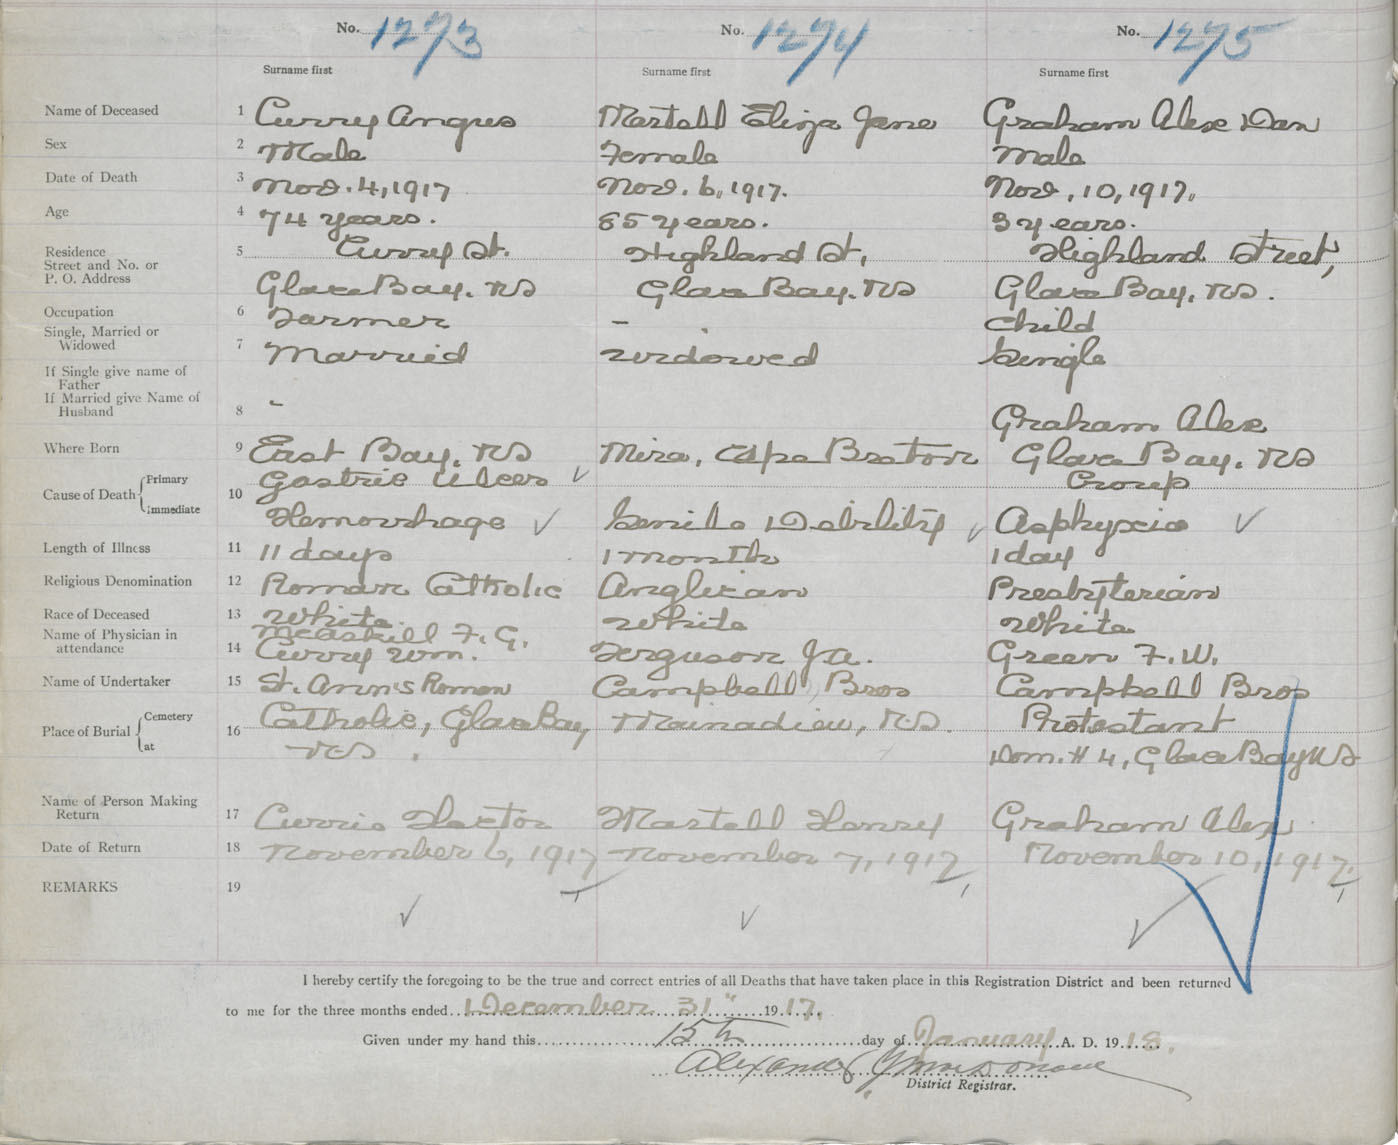 No. 1273 No. 1274 No. 1275
Surname first Surname first Surname first
Name of Deceased 1 Curry Angus Martell Eliza Jane Graham Alex Dan
Sex 2 Male Female Male
Date of Death 3 Nov. 4, 1917 Nov. 6, 1917. Nov. 10, 1917.
Age 4 74 years. 85 years. 3 years.
Residence 5 Curry St. Highland St, Highland Street,
Street and No. or
P. O. Address Glace Bay. NS Glace Bay. NS Glace Bay, NS.
Occupation 6 Farmer - Child
Single, Married or
Widowed 7 Married Widowed Single
If Single give name of
Father
If Married give Name of
Husband 8 - Graham Alex
Where Born 9 East Bay. NS Mira, Cape Breton Glace Bay. NS
Cause of Death Primary 10 Gastric Ulcers Croup
Immediate Hemorrhage Senile Debility Asphyxia
Length of Illness 11 11 days 1 month 1 day
Religious Denomination 12 Roman Catholic Anglican Presbyterian
Race of Deceased 13 White. White White
Name of Physician in
attendance 14 McAskill F. G. Ferguson J.A. Green F. W.
Name of Undertaker 15 Curry Wm. Campbell Bros Campbell Bros
Place of Burial Cemetery 16 St. Ann's Roman
Catholic, Glace Bay, Mainadieu, N.S. Protestant
at NS. Dom. # 4, Glace Bay NS
Name of Person Making
Return 17 Currie Hector Martell Henry Graham Alex
Date of Return 18 November 6, 1917 November 7, 1917, November 10, 1917.
REMARKS 19
I hereby certify the foregoing to be the true and correct entries of all Deaths that have taken place in this Registration District and been returned
to me for the three months ended December 31" 1917.
Given under my hand this 15th day of January A. D. 1918.
Alexander
District Registrar.